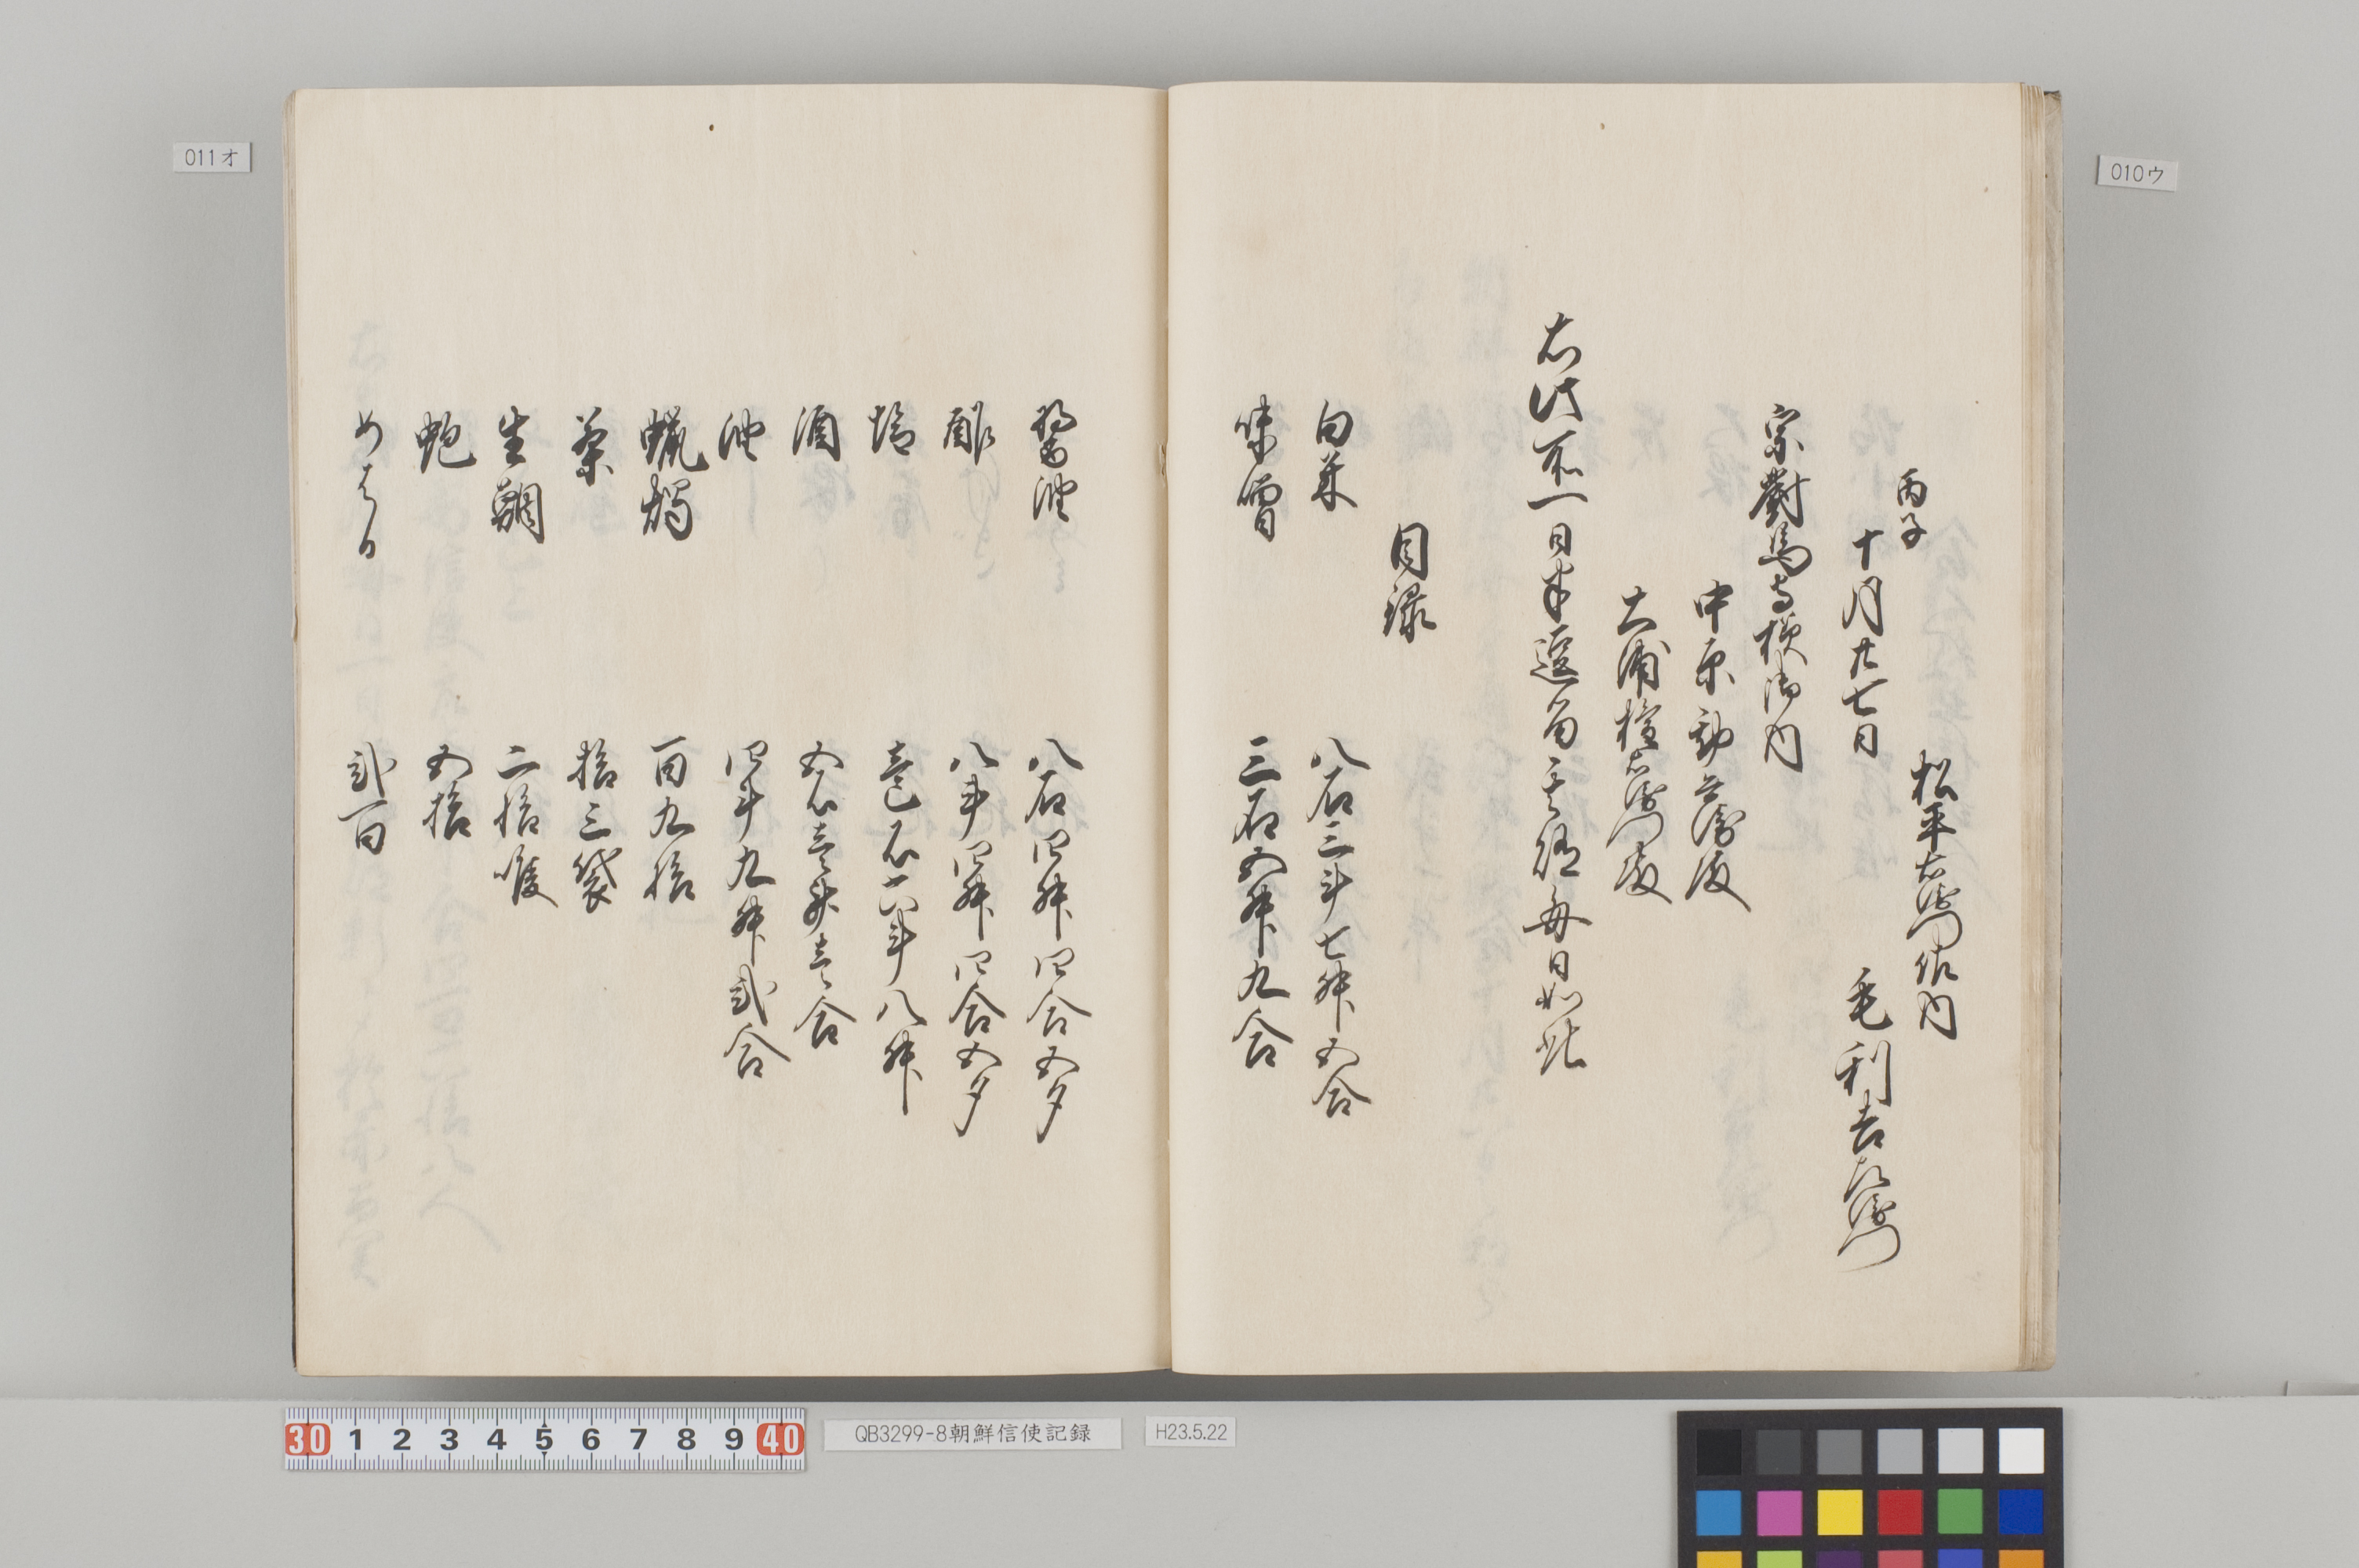 010ウ
松平右衛門佐内
丙子
十月廿七日
毛利吉左衛門
宗對馬守様御内
中原勘兵衛殿
大浦権右衛門殿
右此一日本逗留之毎日如此
目録
白米 八石三斗七舛五合
味噌 三石五舛九合
011オ
醤油 八石四舛四合五夕
酢 八斗四舛四合五夕
塩 壱石六斗八舛
酒 五石壱斗壱合
油 四斗九舛弐合
蝋燭 百九拾
茶 拾三袋
生鯛 二拾喉
鮑 五拾
めばる 弐百
30 1 2 3 4 5 6 7 8 9 40
QB3299-8朝鮮信使記録
H23.5.22